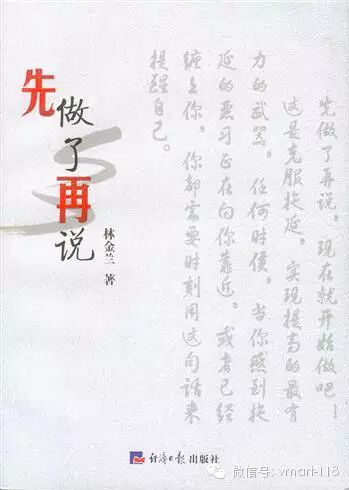 先做了再说
林金兰 著
先做了再说。现在就开始做吧！
这是克服拖延。实现提高的最有
力的武器。任何时候。当你感到拖
延的恶习正在向你靠近。或者已经
缠上你。你都需要时刻用这句话来
提醒自己。
经济日报出版社
微信号: vmart-118